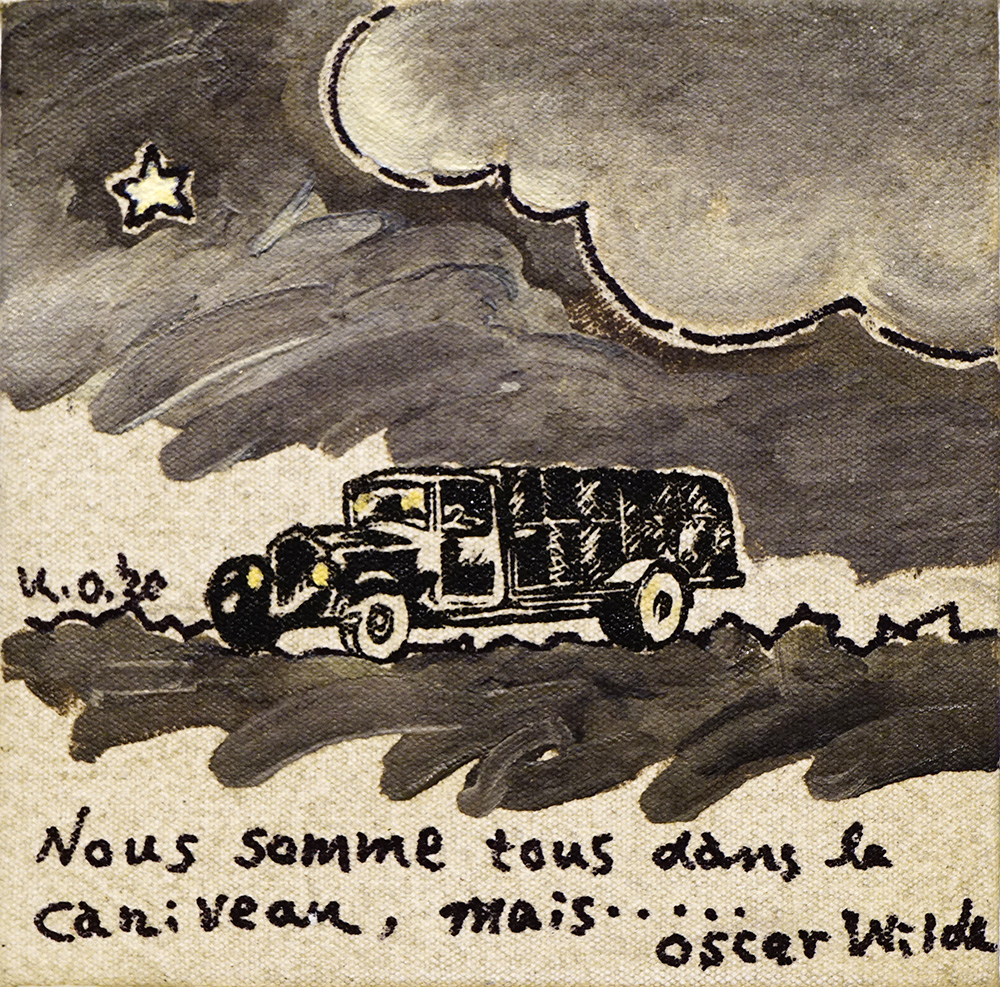 K.O.20
Nous somme tous dans le
caniveau, mais......
oscar Wilde